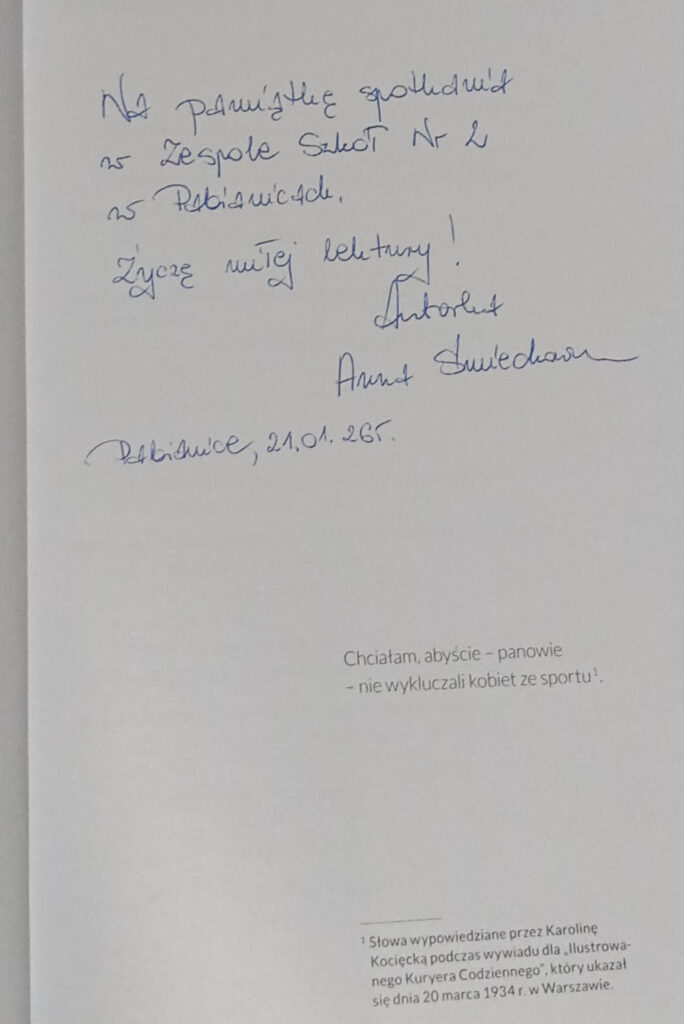 Na pamiątkę spotkania
w Zespole Szkół Nr 2
w Pabianicach.
Życzę miłej lektury!
Autorka
Anna
Pabianice, 21.01.26r.
Chciałam, abyście – panowie
– nie wykluczali kobiet ze sportu¹.
¹ Słowa wypowiedziane przez Karolinę
Kocięcką podczas wywiadu dla „Ilustrowa-
nego Kuryera Codziennego”, który ukazał
się dnia 20 marca 1934 r. w Warszawie.